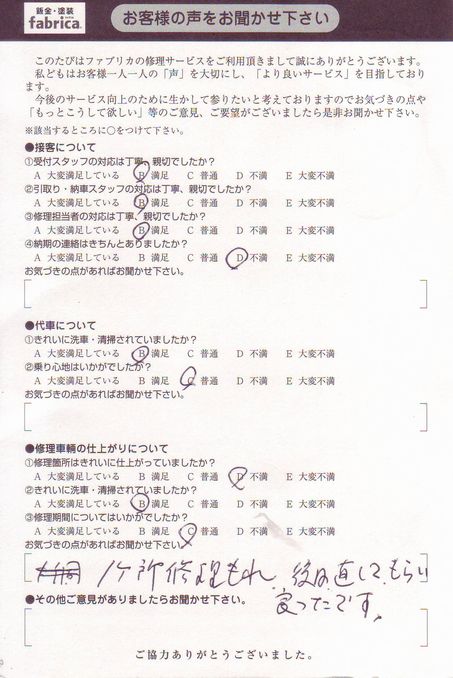 鈑金・塗装
fabrica.
お客様の声をお聞かせ下さい
このたびはファブリカの修理サービスをご利用頂きまして誠にありがとうございます。
私どもはお客様一人一人の「声」を大切にし、「より良いサービス」を目指しております。
今後のサービス向上のために生かして参りたいと考えておりますのでお気づきの点や
「もっとこうして欲しい」等のご意見、ご要望がございましたら是非お聞かせ下さい。
※該当するところに○をつけて下さい。
●接客について
①受付スタッフの対応は丁寧、親切でしたか?
A 大変満足している B 満足 C 普通 D 不満 E 大変不満
②引取り・納車スタッフの対応は丁寧、親切でしたか?
A 大変満足している B 満足 C 普通 D 不満 E 大変不満
③修理担当者の対応は丁寧、親切でしたか?
A 大変満足している B 満足 C 普通 D 不満 E 大変不満
④納期の連絡はきちんとありましたか?
A 大変満足している B 満足 C 普通 D 不満 E 大変不満
お気づきの点があればお聞かせ下さい。
●代車について
①きれいに洗車・清掃されていましたか?
A 大変満足している B 満足 C 普通 D 不満 E 大変不満
②乗り心地はいかがでしたか?
A 大変満足している B 満足 C 普通 D 不満 E 大変不満
お気づきの点があればお聞かせ下さい。
●修理車輌の仕上がりについて
①修理箇所はきれいに仕上がっていましたか?
A 大変満足している B 満足 C 普通 D 不満 E 大変不満
②きれいに洗車・清掃されていましたか?
A 大変満足している B 満足 C 普通 D 不満 E 大変不満
③修理期間についてはいかがでしたか?
A 大変満足している B 満足 C 普通 D 不満 E 大変不満
お気づきの点があればお聞かせ下さい。
1ヶ所修理もれ、後は直してもらい
良ったです。
●その他ご意見がありましたらお聞かせ下さい。
ご協力ありがとうございました。